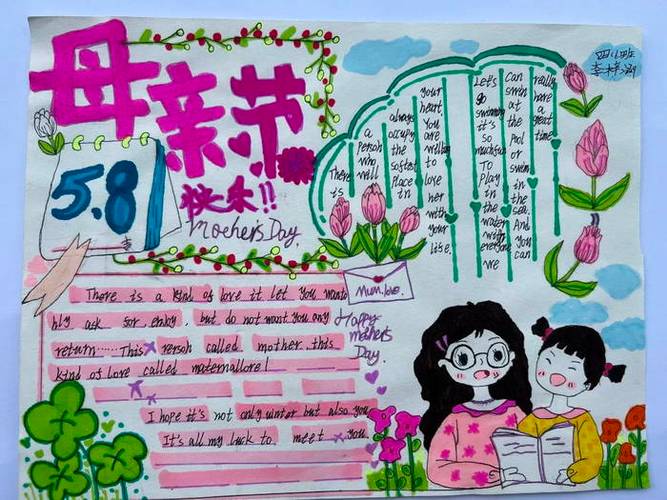 母亲节
快乐!!
Mother's Day.
5.8
There is
a person who will
always occupy the softest place in
your heart. You are willing to love her with your life.
Let's go swimming it's so much fun To play in the water with everyone we
can swim at the pool or swim in the sea. And you can
really have a great time.
Mum.love.
Happy
mother's
Day.
There is a kind of love it let you wanto
hly ask for enjoy. but do not want you any
return……This person called mother this
kind of love called maternallore!
I hope it's not only winter but also you
It's all my luck to meet you.